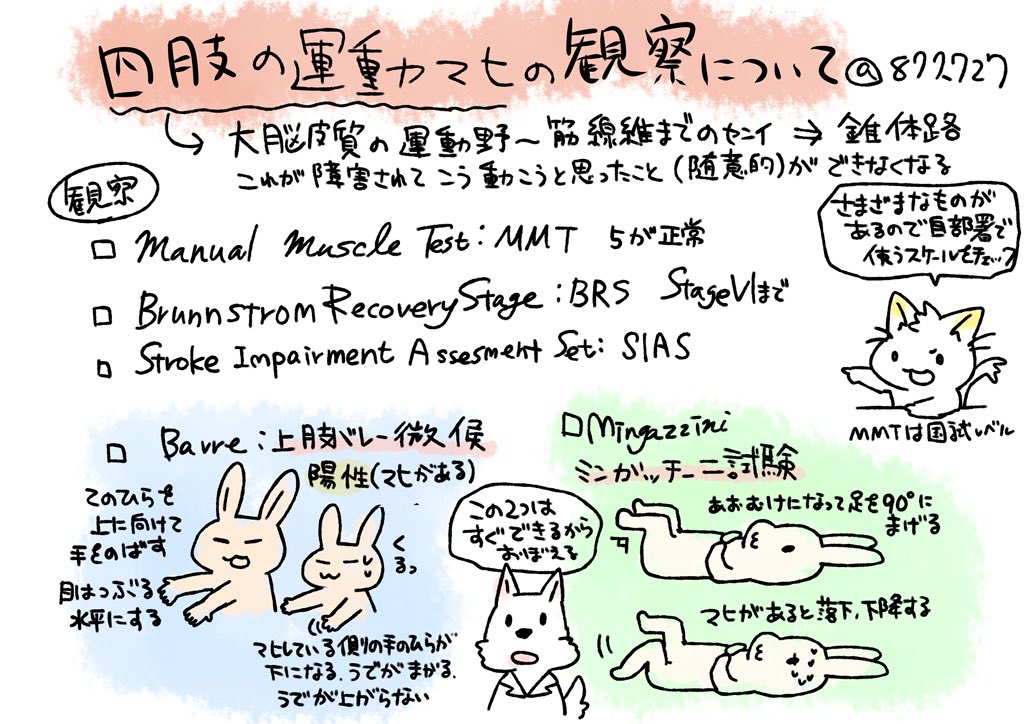 四肢の運動マヒの観察について @877727
大脳皮質の運動野~筋線維までのセンイ ⇒ 錐体路
これが障害されてこう動こうと思ったこと(随意的)ができなくなる
観察
さまざまなものが
あるので自部署で
使うスケールをチェック
□ Manual Muscle Test:MMT 5が正常
□ Brunnstrom Recovery Stage:BRS StageⅥまで
□ Stroke Impairment Assesment Set:SIAS
MMTは国試レベル
□ Barre:上肢バレー徴候
陽性(マヒがある)
てのひらを
上に向けて
手をのばす
目はつぶる
水平にする
くるっ
マヒしている側の手のひらが
下になる.うでがまがる.
うでが上がらない
この2つは
すぐできるから
おぼえる
□Mingazzini
ミンガッチーニ試験
あおむけになって足を90°に
まげる
マヒがあると落下,下降する